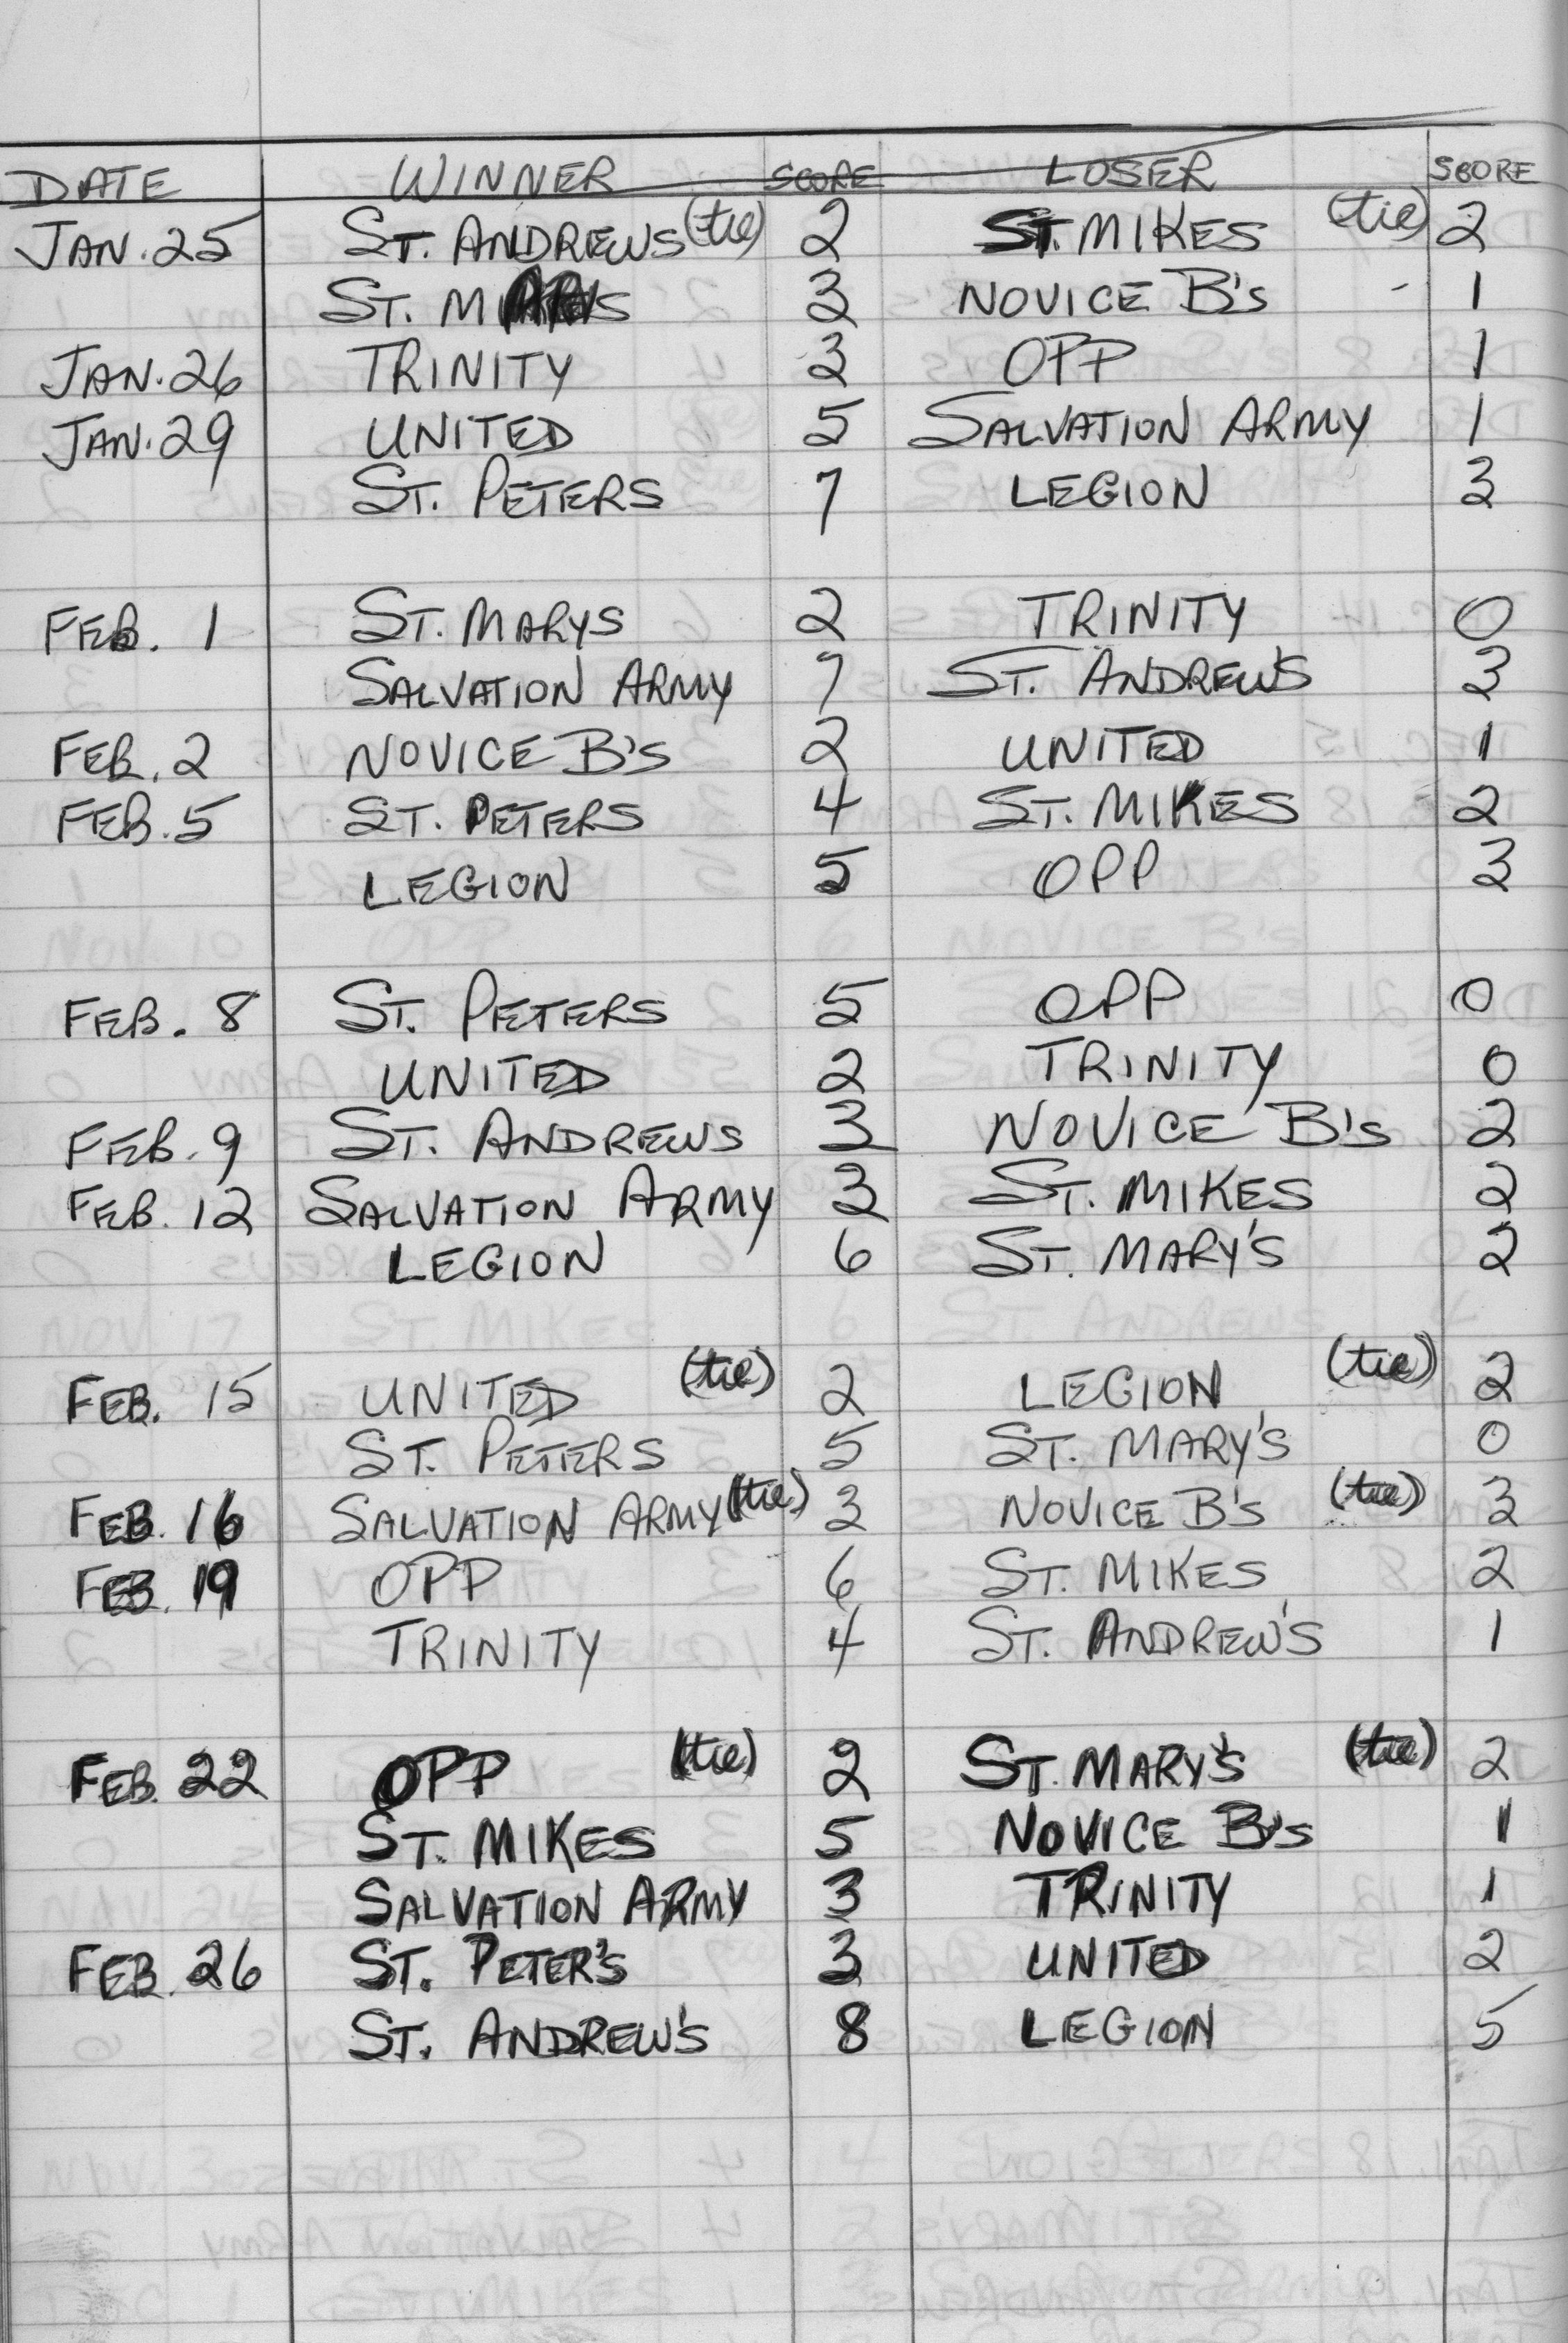 DATE WINNER SCORE LOSER SCORE
JAN. 25 ST. ANDREWS (tie) 2 ST. MIKES (tie) 2
ST. MARYS 3 NOVICE B's - 1
JAN. 26 TRINITY 3 OPP 1
JAN. 29 UNITED 5 SALVATION ARMY 1
ST. PETERS 7 LEGION 3
FEB. 1 ST. MARYS 2 TRINITY 0
SALVATION ARMY 7 ST. ANDREW'S 3
FEB. 2 NOVICE B's 2 UNITED 1
FEB. 5 ST. PETERS 4 ST. MIKES 2
LEGION 5 OPP 3
FEB. 8 ST. PETERS 5 OPP 0
UNITED 2 TRINITY 0
FEB. 9 ST. ANDREWS 3 NOVICE B's 2
FEB. 12 SALVATION ARMY 3 ST. MIKES 2
LEGION 6 ST. MARY'S 2
FEB. 15 UNITED (tie) 2 LEGION (tie) 2
ST. PETERS 5 ST. MARY'S 0
FEB. 16 SALVATION ARMY (tie) 3 NOVICE B's (tie) 3
FEB. 19 OPP 6 ST. MIKES 2
TRINITY 4 ST. ANDREW'S 1
FEB. 22 OPP (tie) 2 ST. MARY'S (tie) 2
ST. MIKES 5 NOVICE B's 1
SALVATION ARMY 3 TRINITY 1
FEB. 26 ST. PETER'S 3 UNITED 2
ST. ANDREW'S 8 LEGION 5